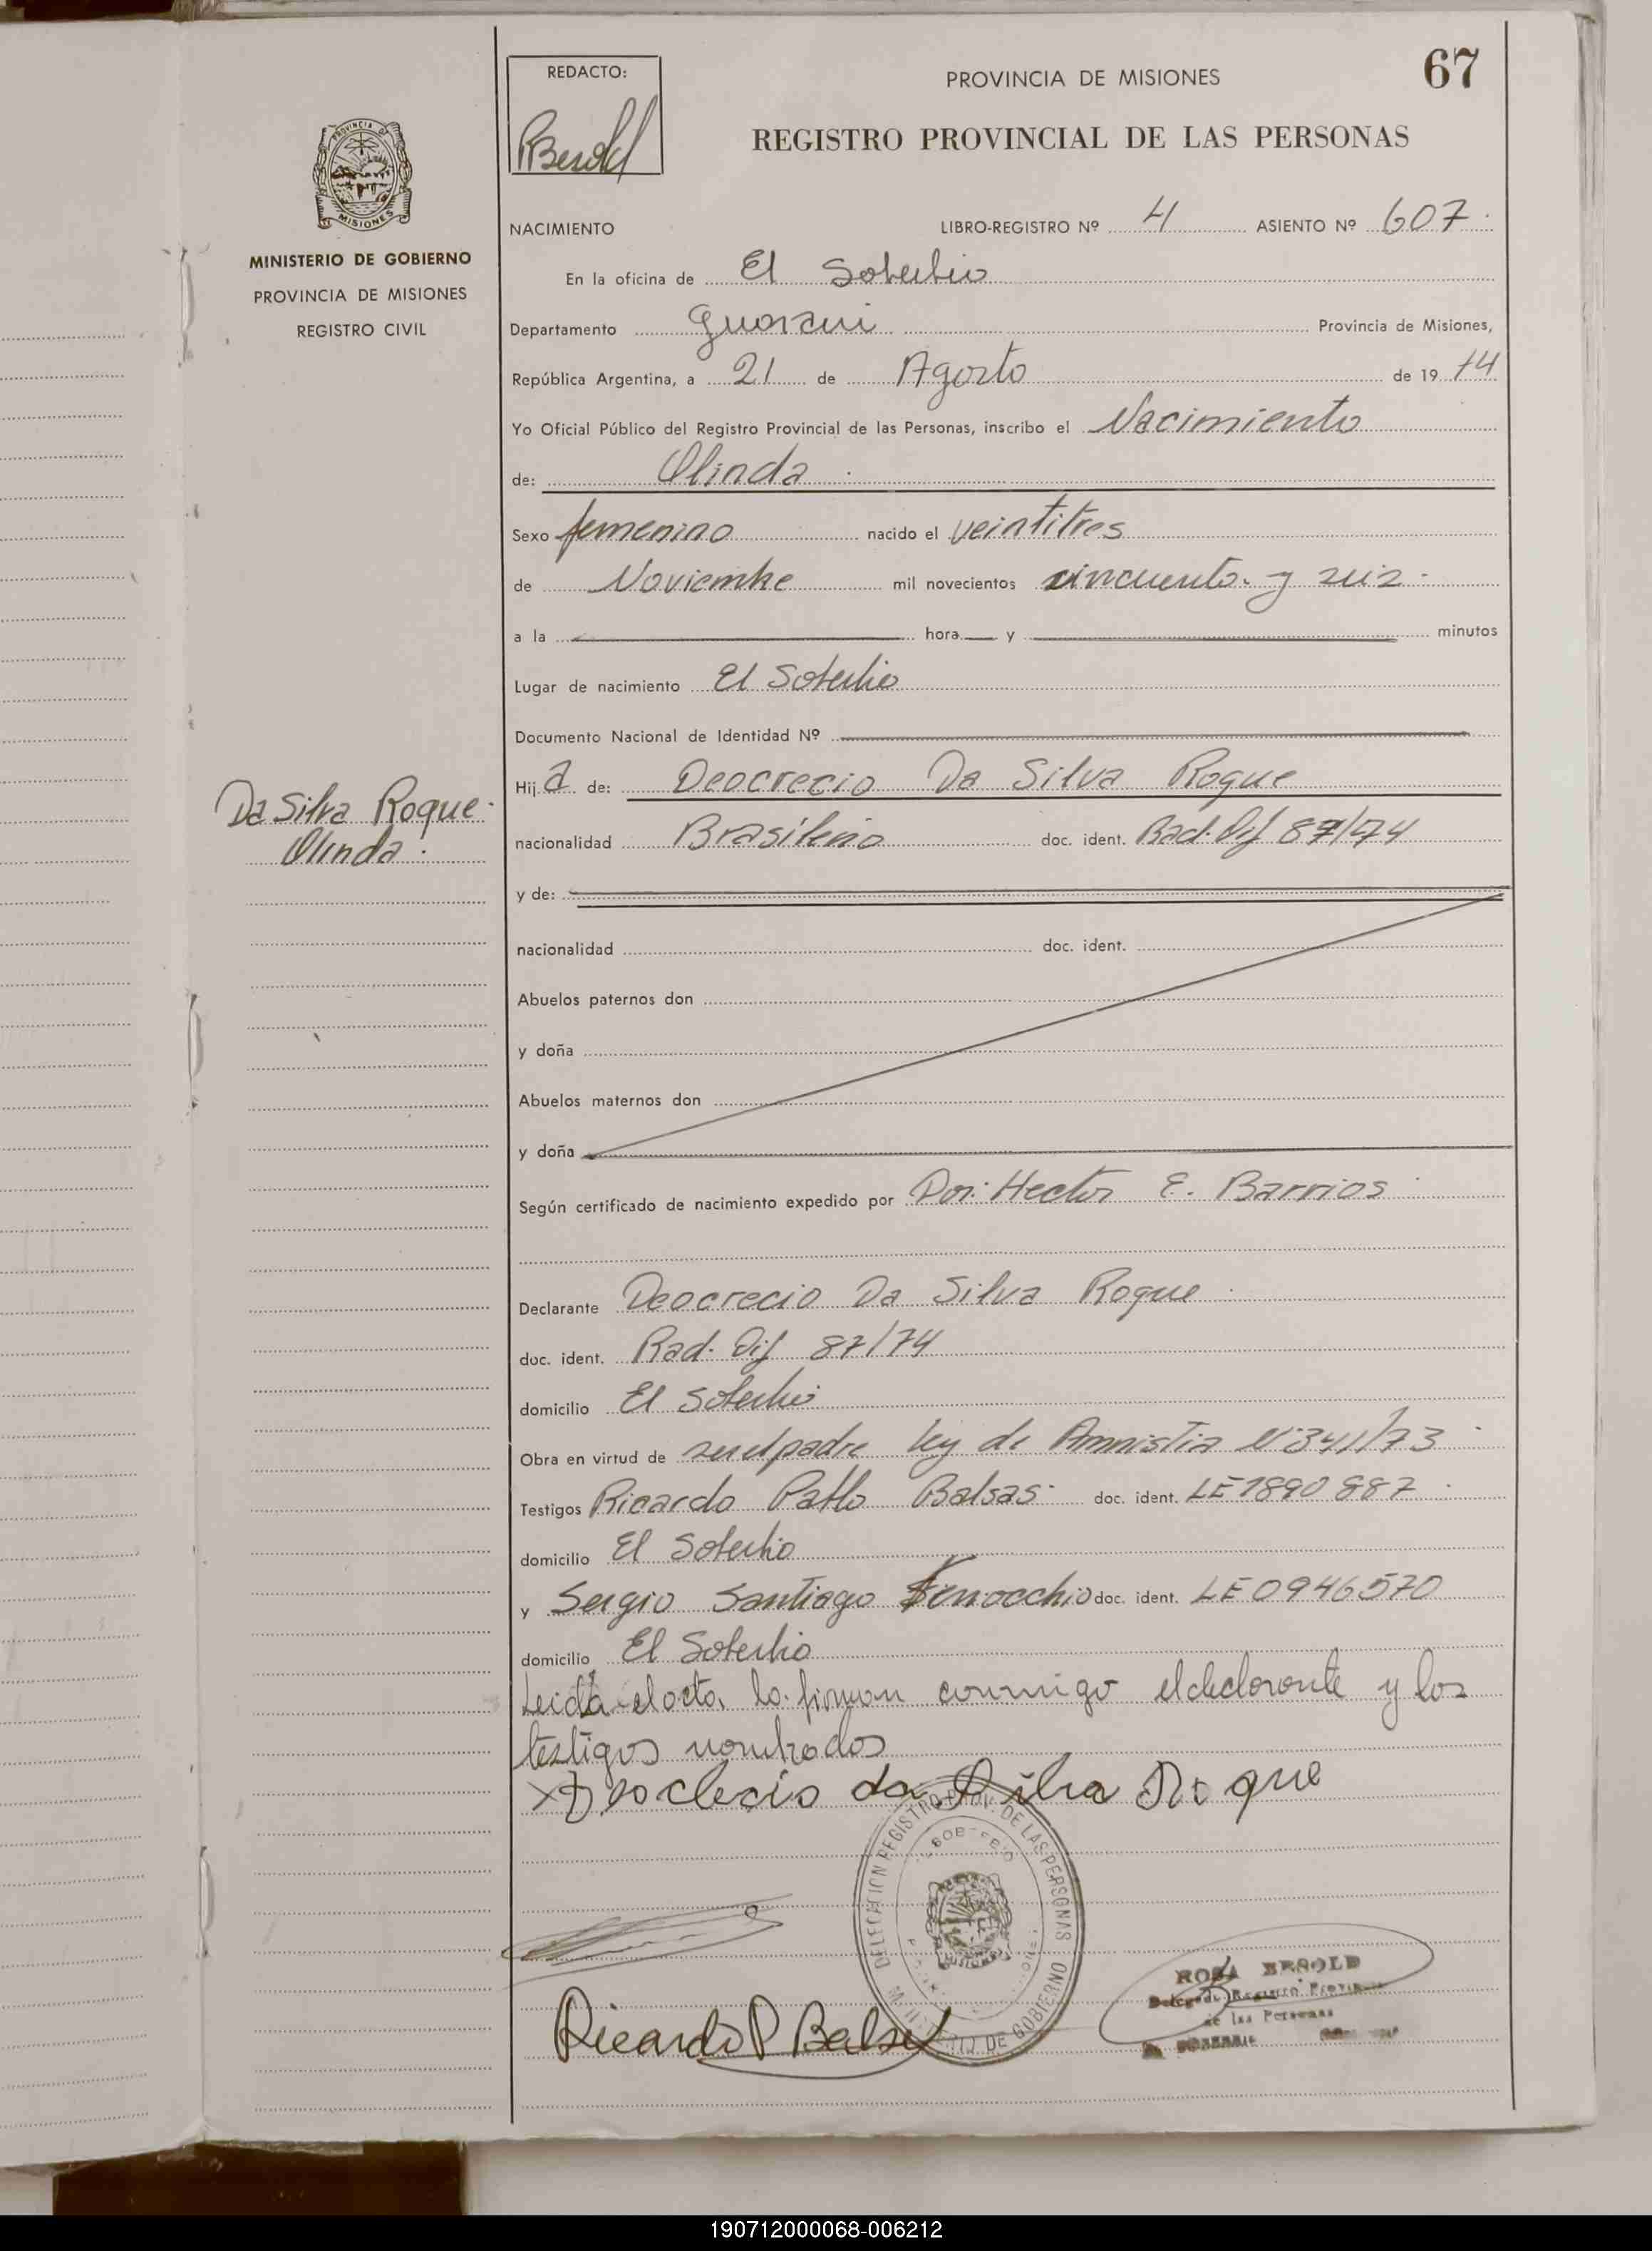 67
REDACTO:
PBesold
PROVINCIA DE MISIONES
REGISTRO PROVINCIAL DE LAS PERSONAS
PROVINCIA DE
MISIONES
MINISTERIO DE GOBIERNO
PROVINCIA DE MISIONES
REGISTRO CIVIL
NACIMIENTO LIBRO-REGISTRO Nº 4 ASIENTO Nº 607
En la oficina de El Soberbio
Departamento Guarani Provincia de Misiones,
República Argentina, a 21 de Agosto de 19 74
Yo Oficial Público del Registro Provincial de las Personas, inscribo el Nacimiento
de: Olinda
Sexo femenino nacido el veintitres
de Noviembre mil novecientos cincuenta y seis
a la hora y minutos
Lugar de nacimiento El Soberbio
Documento Nacional de Identidad Nº
Da Silva Roque
Olinda
Hija de: Deocrecio Da Silva Roque
nacionalidad Brasileño doc. ident. Rad. Dif 87/74
y de:
nacionalidad doc. ident.
Abuelos paternos don
y doña
Abuelos maternos don
y doña
Según certificado de nacimiento expedido por Dor: Hector E. Barrios
Declarante Deocrecio Da Silva Roque
doc. ident. Rad. Dif 87/74
domicilio El Soberbio
Obra en virtud de ser el padre ley de Amnistia Nº 341/73
Testigos Ricardo Pablo Balsas doc. ident. LE 1890887
domicilio El Soberbio
y Sergio Santiago Finocchio doc. ident. LE 0946570
domicilio El Soberbio
Leida el acta, la firman conmigo el declarante y los
testigos nombrados
X Deoclecio da Silva Roque
DELEGACION REGISTRO PROV. DE LAS PERSONAS
MINISTERIO DE GOBIERNO
Ricardo P Balsas
ROSA BESOLD
Delegado Registro Provincial
de las Personas
190712000068-006212